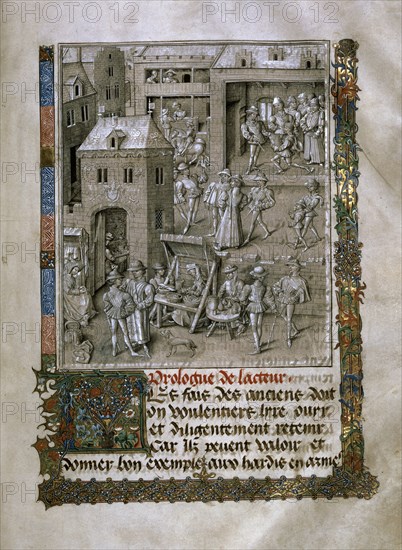 Prologue de lacteur
Les fais des anciens doit
on voulentiers lyre ouyr
et diligentement retenir
Car ilz peuent valoir et
donner bon exemple aux hardis en arme
PHOTO12
PHOTO12
PHOTO12
PHOTO12
PHOTO12
PHOTO12